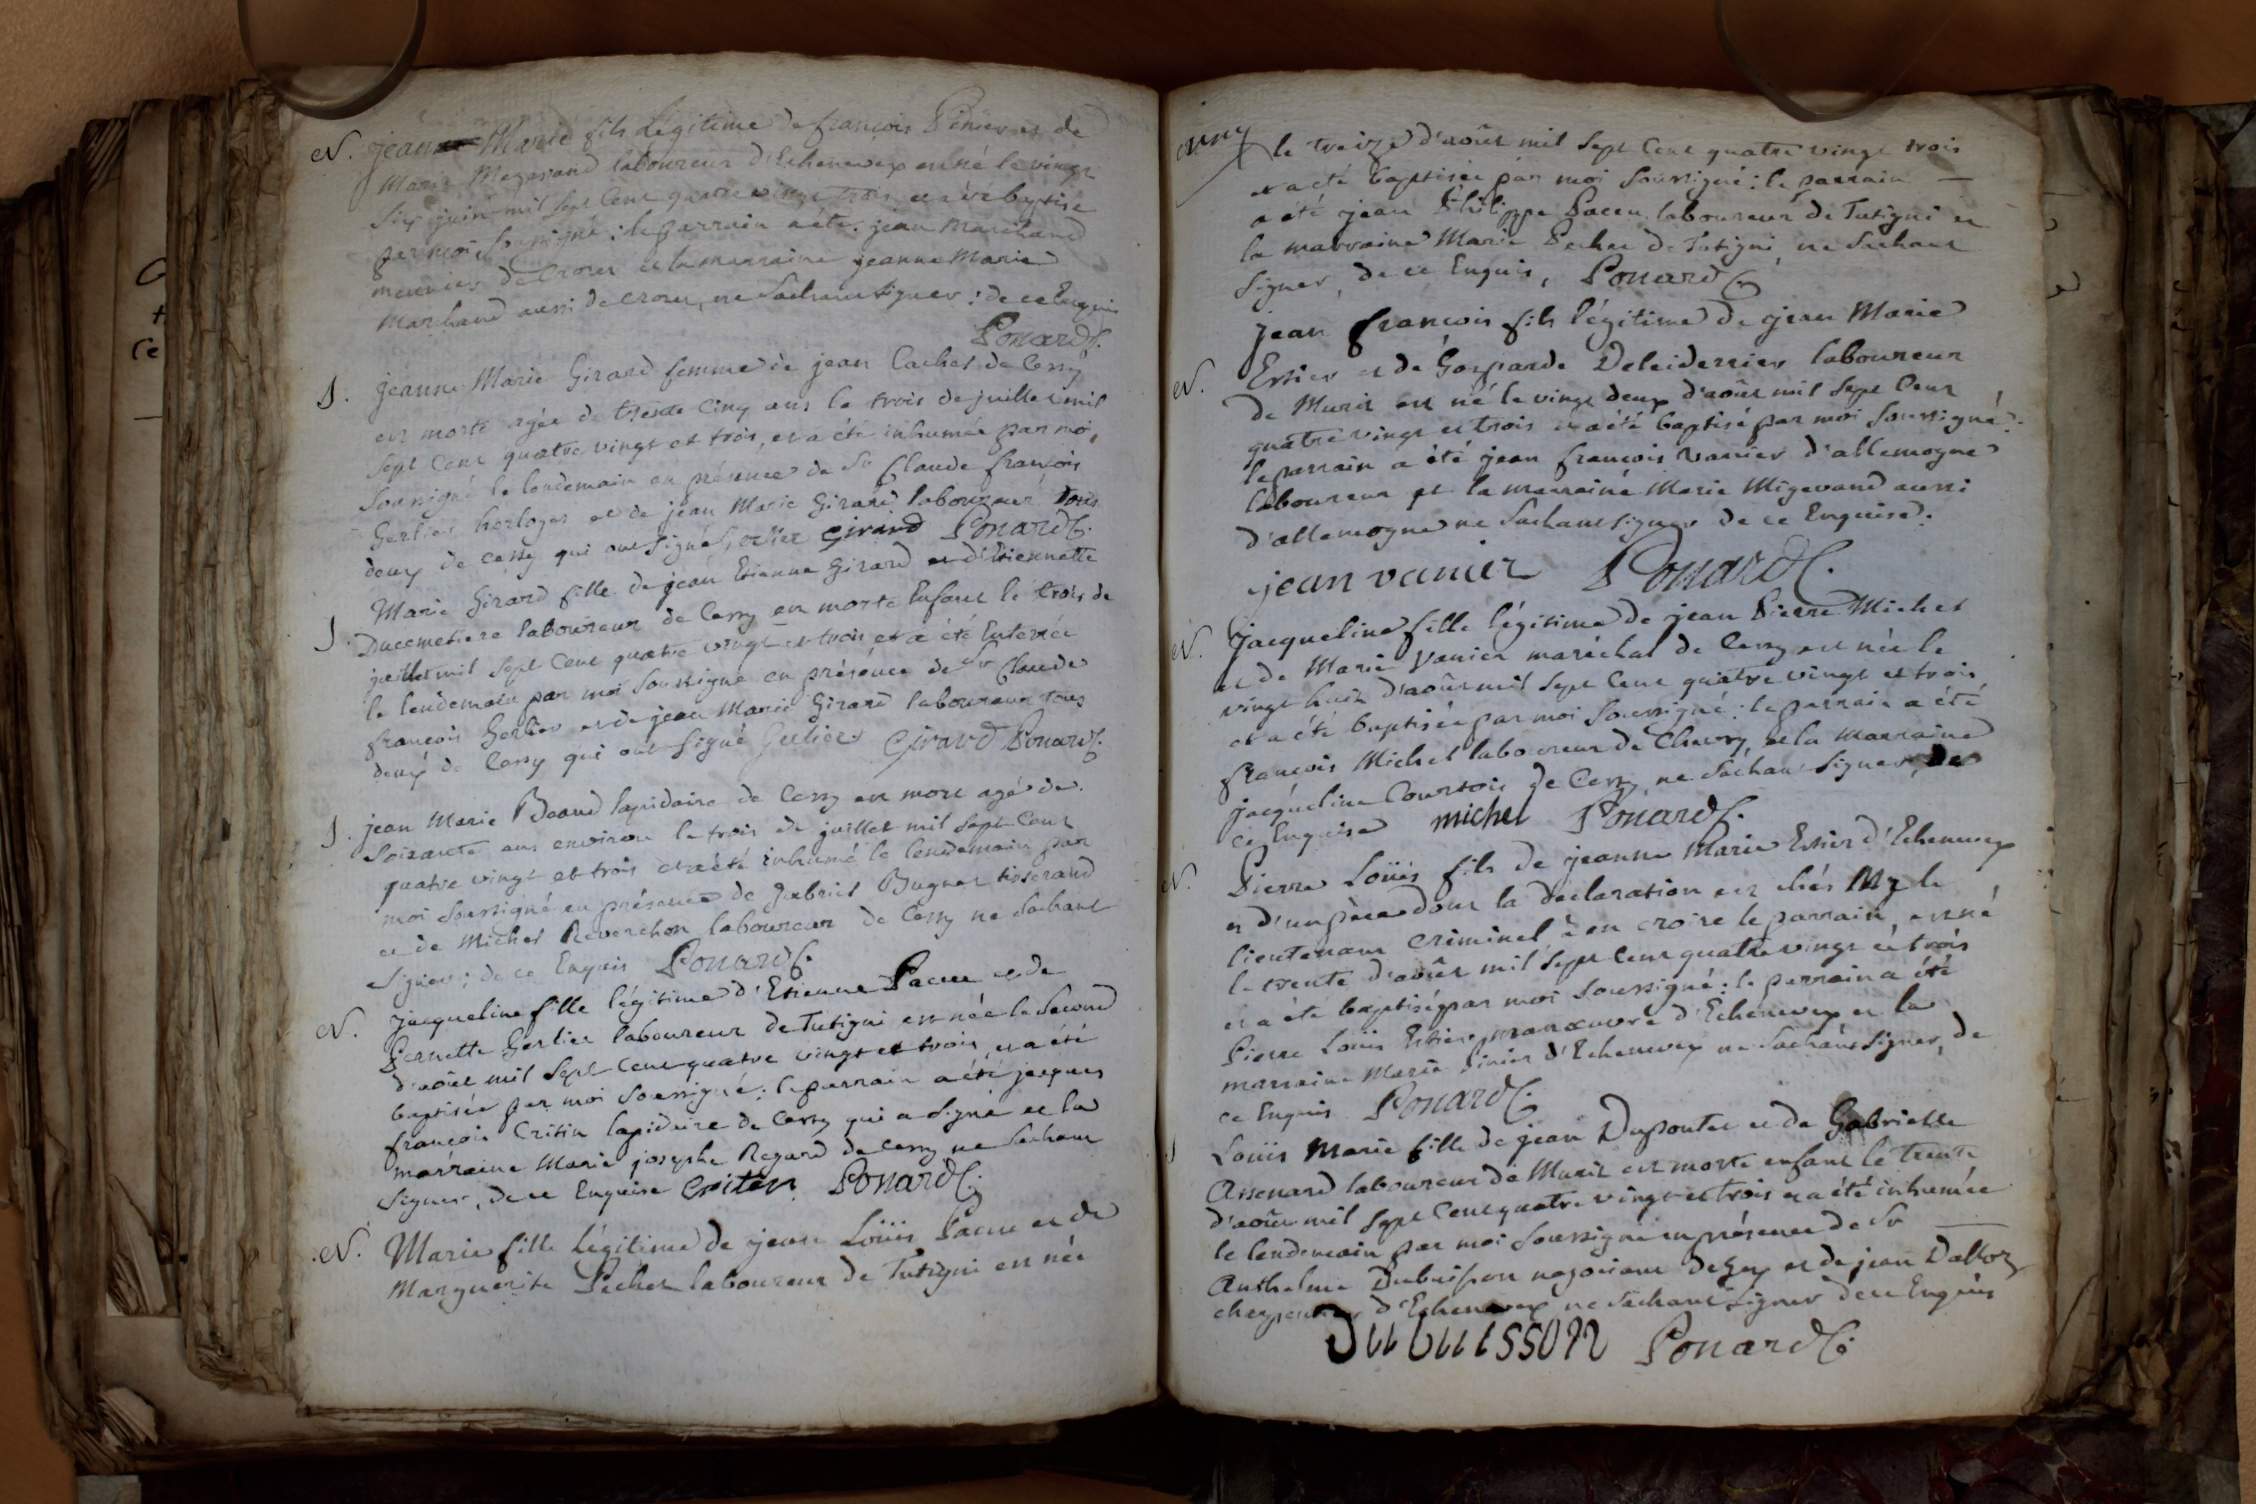 N. jean Marie fils légitime de françois Pinier et de
Marie Megevand laboureur d'Echenevex est né le vingt
six juin mil sept cent quatre vingt trois et a été baptisé
par moi soussigné : le parrain a été jean Marchand
meunier de Crozet et la marraine jeanne Marie
Marchand aussi de crozet, ne sachant signer : de ce Enquis
Ponard C.
S. jeanne Marie Girard femme de jean Cachet de Cessy
est morte agée de trente cinq ans le trois de juillet mil
sept Cent quatre vingt et trois, et a été inhumée par moi,
soussigné le lendemain en présence de Sr Claude françois
Gerlier horloger et de jean Marie Girard laboureur tous
deux de cessy qui ont signé Gerlier Girard Ponard C.
S. Marie Girard fille de jean Etienne Girard et d'Etiennette
Ducemetiere laboureur de Cessy est morte Enfant le trois de
juillet mil sept Cent quatre vingt et trois et a été Enterrée
le lendemain par moi soussigné en présence de Sr Claude
françois Gerlier et de jean Marie Girard laboureur tous
deux de Cessy qui ont signé Gerlier Girard Ponard C.
S. jean Marie Beaud lapidaire de Cessy est mort agé de
soixante ans environ le trois de juillet mil sept Cent
quatre vingt et trois et a été inhumé le lendemain par
moi soussigné en présence de Gabriel Bugnet tisserand
et de Michel Reverchon laboureur de Cessy ne sachant
signer ; de ce Enquis Ponard C.
N. jacqueline fille légitime d'Etienne Paceu et de
Pernette Gerlier laboureur de Tutigni est née le second
d'août mil sept Cent quatre vingt et trois, et a été
baptisée par moi soussigné : le parrain a été jacques
françois Critin lapidaire de Cessy qui a signé et la
marraine Marie josephe Regard de Cessy ne sachant
signer, de ce Enquise Critin Ponard C.
N. Marie fille légitime de jean Loüis Paceu et de
Marguerite Pecher laboureur de Tutigni est née
le treize d'août mil sept Cent quatre vingt trois
et a été baptisée par moi soussigné : le parrain
a été jean Philippe Paceu laboureur de Tutigni et
la marraine Marie Pecher de Tutigni, ne sachant
signer, de ce Enquis, Ponard C.
N. jean françois fils légitime de jean Marie
Essier et de Gasparde Deleiderrier laboureur
de Murit est né le vingt deux d'août mil sept Cent
quatre vingt et trois et a été baptisé par moi soussigné :
le parrain a été jean françois Vanier d'allemogne
laboureur et la marraine Marie Migevand aussi
d'allemogne ne sachant signer de ce Enquise :
jean vanier Ponard C.
N. jacqueline fille légitime de jean Pierre Michel
et de Marie Vanier maréchal de Cessy est née le
vingt huit d'août mil sept Cent quatre vingt et trois
et a été baptisée par moi soussigné : le parrain a été
françois Michel laboureur de Chevry, et la marraine
jacqueline Courtois de Cessy, ne sachant signer, de
ce Enquise michel Ponard C.
N. Pierre Loüis fils de jeanne Marie Essier d'Echenevex
et d'un père dont la déclaration est chés Mr le
lieutenant Criminel à en croire le parrain, est né
le trente d'août mil sept Cent quatre vingt et trois
et a été baptisé par moi soussigné : le parrain a été
Pierre Loüis Essier manœuvre d'Echenevex et la
marraine Marie Pinier d'Echenevex ne sachant signer, de
ce Enquis Ponard C.
Loüis Marie fille de jean Dupontet et de Gabrielle
Assenard laboureur de Murit est morte enfant le trente
d'août mil sept Cent quatre vingt et trois et a été inhumée
le lendemain par moi soussigné en présence de Sr
Anthelme Dubuisson negociant de Gex et de jean Dalloz
charpentier d'Echenevex ne sachant signer de ce Enquis
Dubuisson Ponard C.